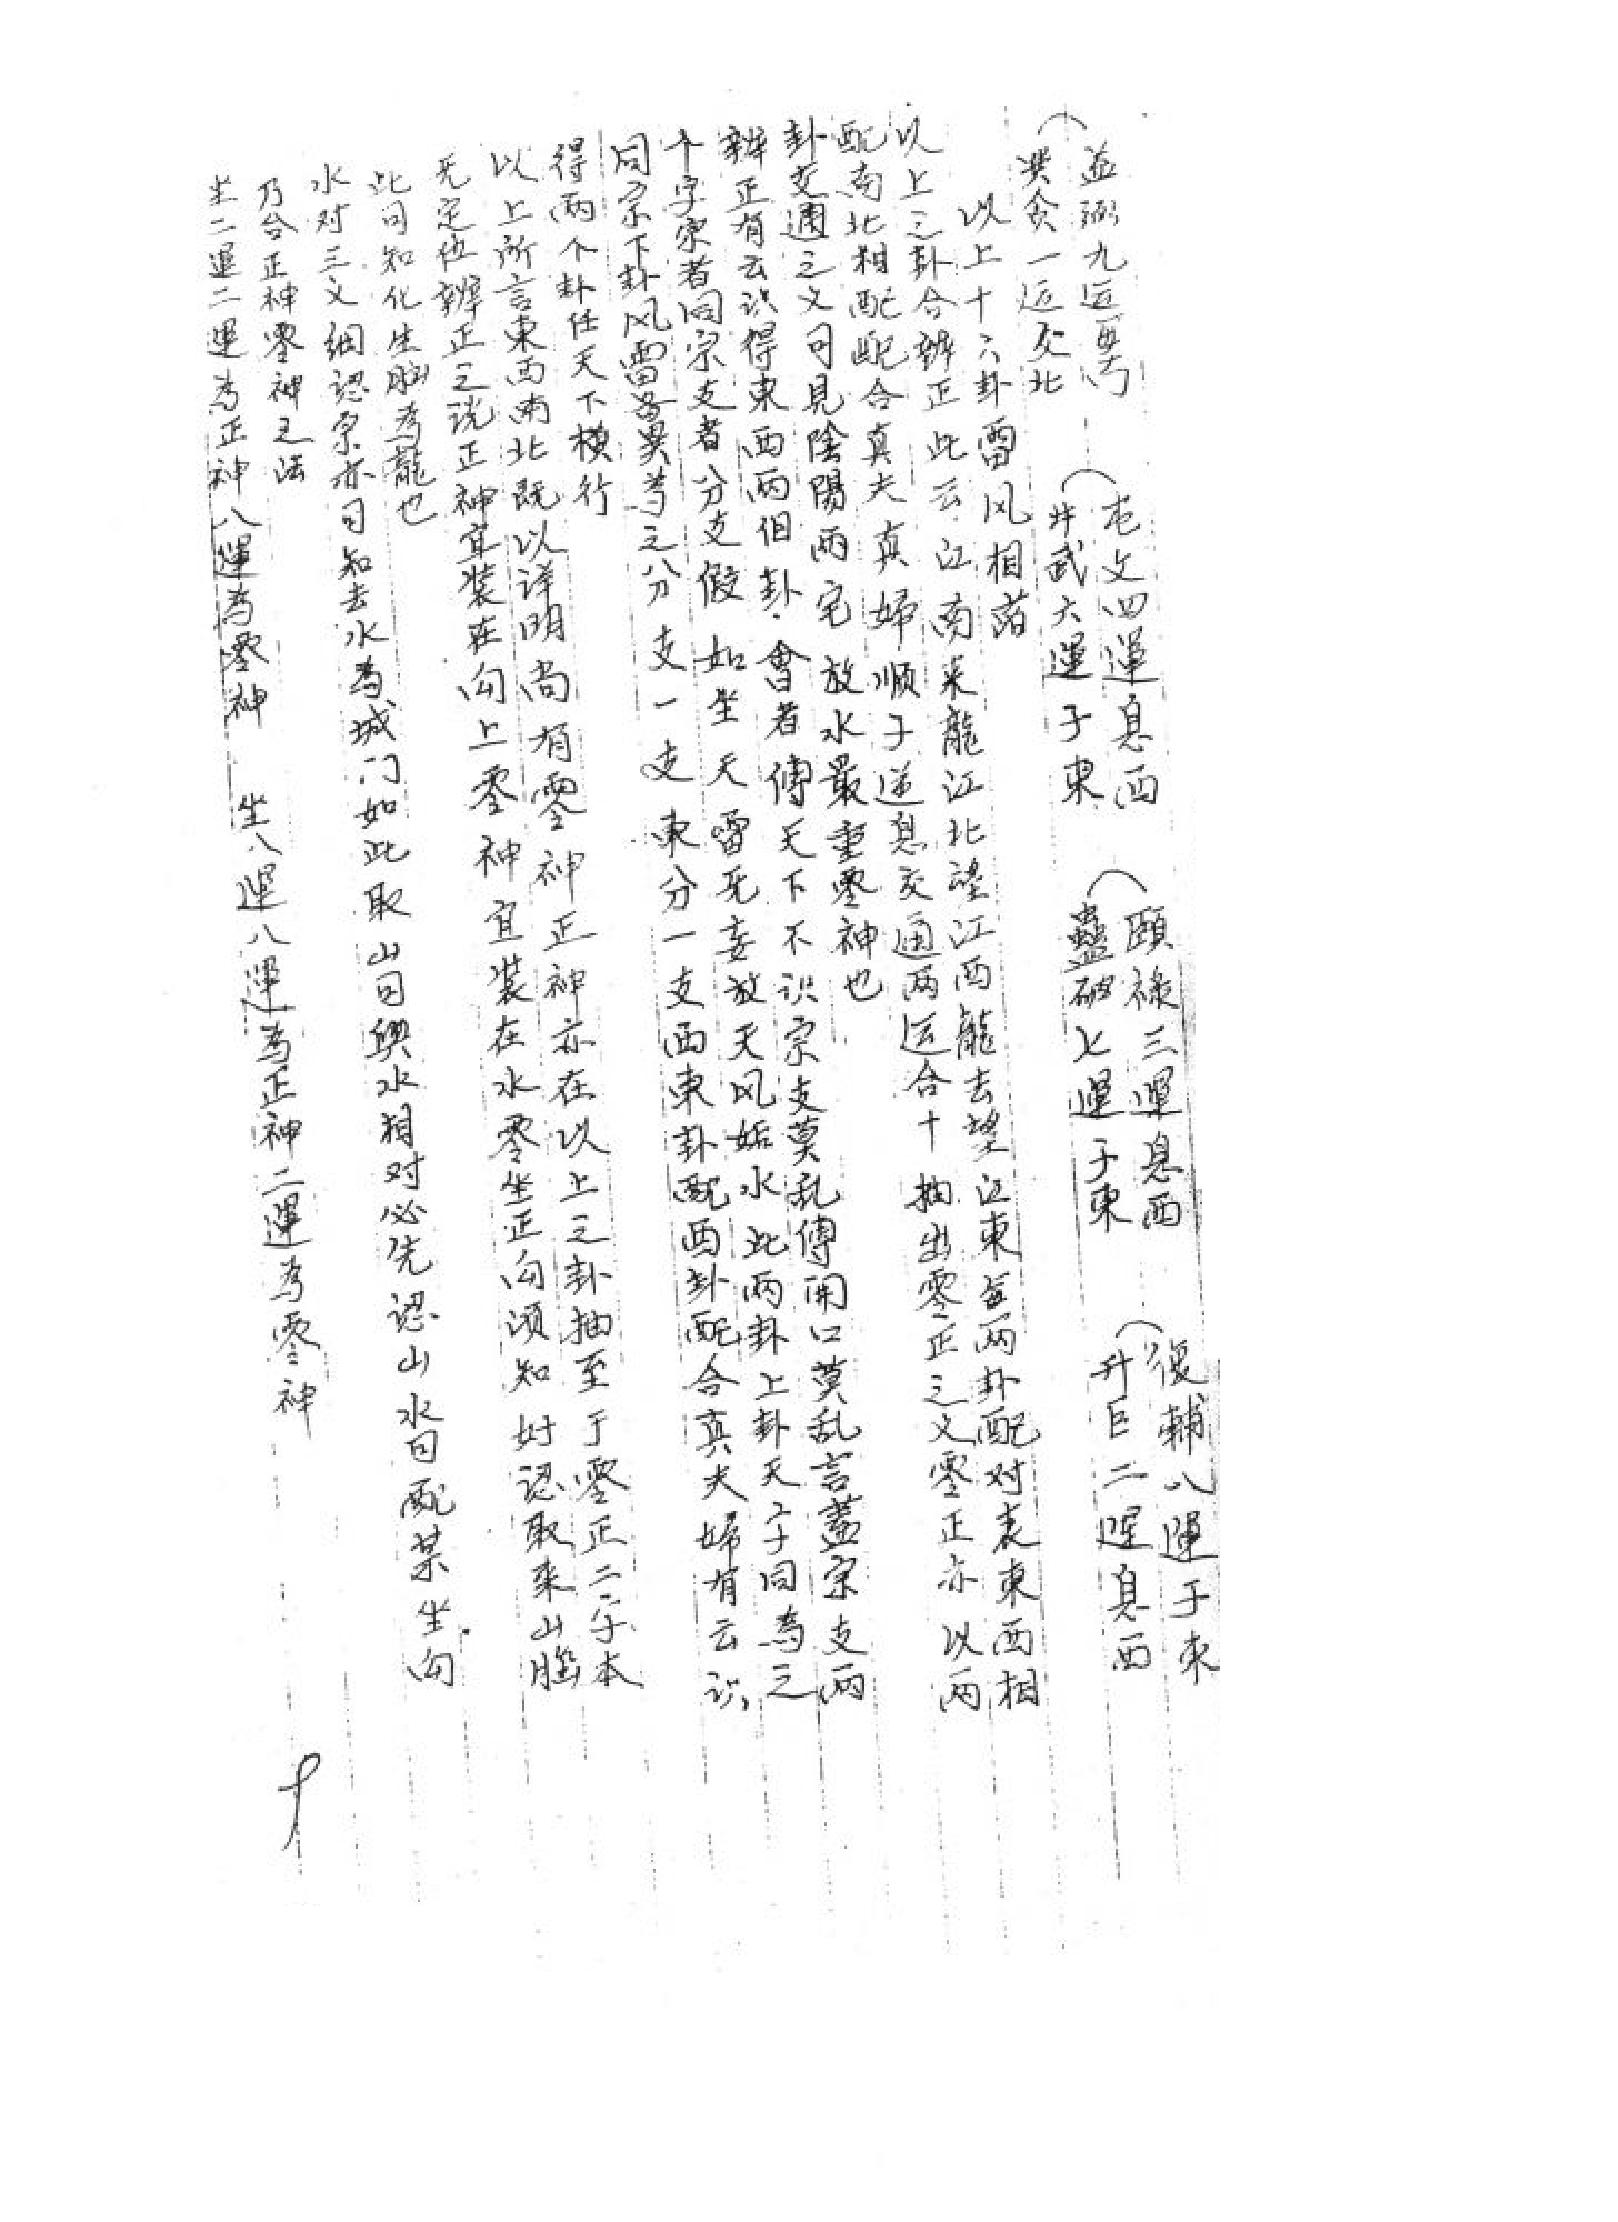 益弼九运 屯文四運息西 頤祿三運息西 復輔八運子東
巽贪一运父北 井武六運子東 蠱破七運子東 升巨二運息西
以上十六卦雷风相薄
以上之卦合辨正此云江南来龍江北望江西龍去望江東每两卦配对表東西相
配南北相配配合真夫真婦顺子逆息交通两运合十抽出零正之文零正亦以两
卦交通之文可見陰陽两宅放水最重零神也
辨正有云识得東西两個卦會者傅天下不识宗支莫乱傅開口莫乱言蓋宗支两
个字宗者同宗支者分支假如坐天雷无妄放天风姤水此两卦上卦天字同為之
同宗下卦风雷巽等之分支一支東分一支西東卦配西卦配合真夫婦有云识
得两个卦任天下横行
以上所言東西南北既以详明尚有零神正神亦在以上之卦抽至于零正二字本
无定位辨正之说正神宜装在向上零神宜装在水零坐正向须知好認取来山腦
此可知化生腦為龍也
水对三文細認宗亦可知去水為城门如此取山因與水相对必先認山水因配某坐向
乃合正神零神之法
坐二運二運為正神八運為零神 坐八運八運為正神二運為零神